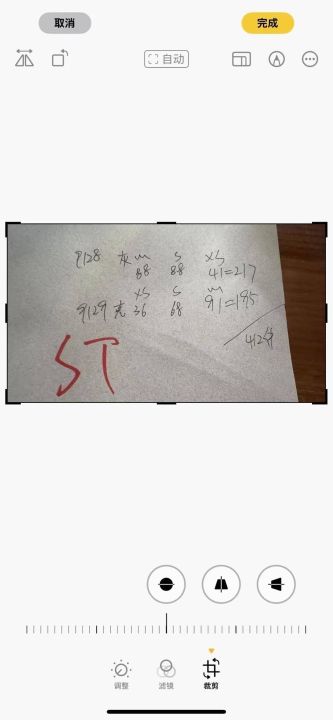 取消
完成
自动
9128 灰 m S XS
88 88 41=217
XS S m
9129 克 36 68 91=195
412件
ST
调整
滤镜
裁剪